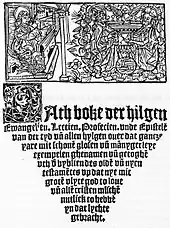 Ath boke der hilgen
Ewangelien, Lectien, Profecien, vnde Epistelē
van der tyd vn̄ allen hylgen ouer dat gantze
yare mit schonē glosen vn̄ mānygerleye
exemplen ghenamen vn̄
des oldē vn̄ nyen
testamētes vp dat nye mit
grotē vlyte god to loue
vn̄ allē cristen mīschē
nutlick to hebbē
yn dat lychte
gebracht.